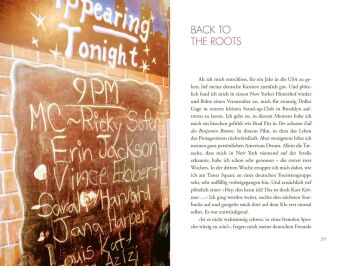 Appearing
Tonight
9PM
MC ~ Ricky
Erin Jackson
Harper
Louis Katz
Aziz
BACK TO
THE ROOTS
Als ich mich entschloss, für ein Jahr in die USA zu ge-
hen, lief meine deutsche Karriere ziemlich gut. Und plötz-
lich fand ich mich in einem New Yorker Hinterhof wieder
und flehte einen Veranstalter an, mich für zwanzig Dollar
Gage in seinem kleinen Stand-up-Club in Brooklyn auftre-
ten zu lassen. Ich gebe zu, in diesem Moment habe ich
mich ein bisschen gefühlt wie Brad Pitt in Der seltsame Fall
des Benjamin Button. In diesem Film, in dem das Leben
des Protagonisten rückwärtsläuft. Aber wenigstens lebte ich
meinen ganz persönlichen American Dream. Allein die Tat-
sache, dass mich in New York niemand auf der Straße
erkannte, habe ich schon sehr genossen – die ersten zwei
Wochen. In der dritten Woche ertappte ich mich dabei, wie
ich am Times Square an einer deutschen Touristengruppe
sehr, sehr auffällig vorbeigegangen bin. Und tatsächlich rief
plötzlich einer: »Hey, den kenn ich doch! Das ist doch Kurt Krö-
mer ...« Ich ging wortlos weiter, suchte den nächsten Star-
bucks auf und googelte mich dort auf dem Klo erst einmal
selbst. Es war entwürdigend.
»Ist es nicht wahnsinnig schwer, in einer fremden Spra-
che witzig zu sein?«, fragten mich meine deutschen Freunde
77